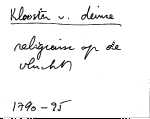 Klooster v. deinse
religieuse op de
vlucht
1790-95